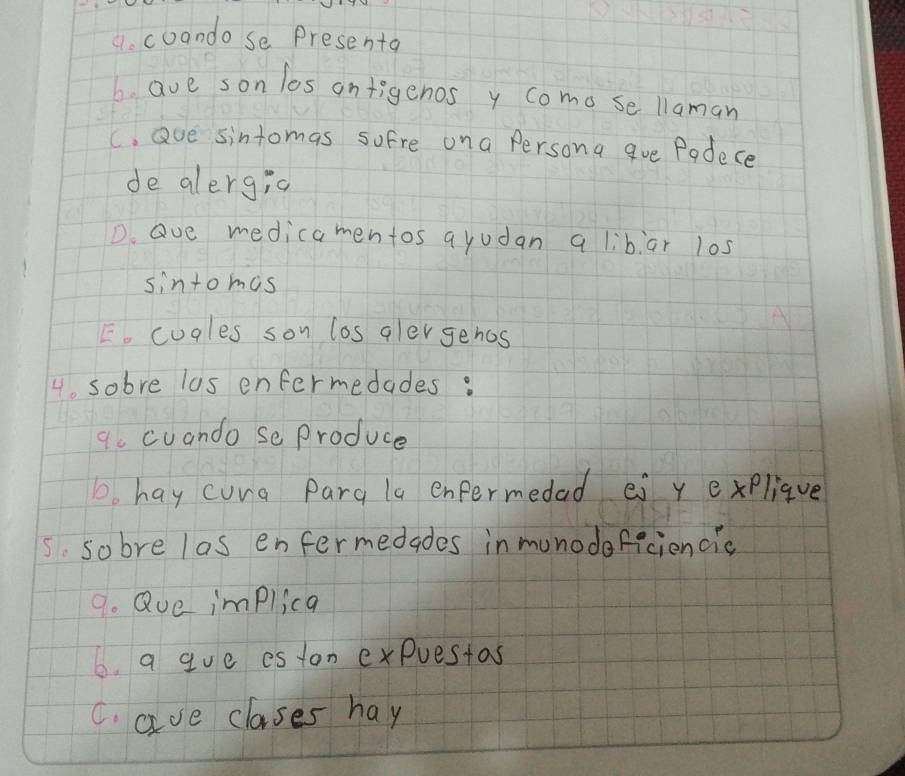 a. cuando se Presenta
b. Que son los antigenos y como se llaman
C. Que sintomas sufre una Persona que Padece
de alergia
D. Que medicamentos ayudan a libiar los
sintomas
E. cuales son los alergenos
4. sobre las enfermedades :
a. cuando se produce
b. hay cura Para la enfermedad y explique
5. sobre las enfermedades inmunodeficiencia
a. Que implica
b. a que estan expuestas
C. que clases hay